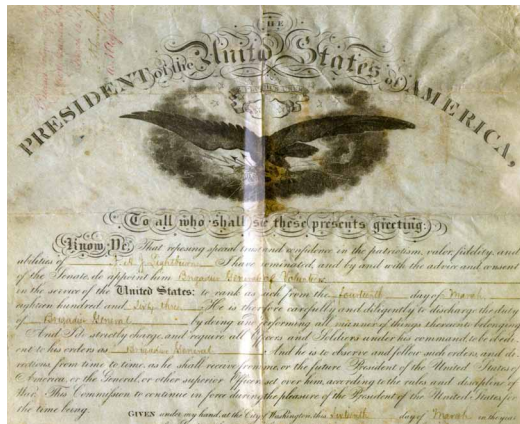 THE
PRESIDENT of the United States of AMERICA,
To all who shall see these presents greeting:
Know Ye, That reposing special trust and confidence in the patriotism, valor, fidelity, and
abilities of I have nominated, and by and with the advice and consent
of the Senate, do appoint him Brigadier General of Volunteers
in the service of the United States: to rank as such from the fourteenth day of March
eighteen hundred and sixty three He is therefore carefully and diligently to discharge the duty
of Brigadier General by doing and performing all manner of things thereunto belonging.
And I do strictly charge, and require all Officers and Soldiers under his command to be obedi-
ent to his orders as Brigadier General And he is to observe and follow such orders, and di-
rections, from time to time, as he shall receive from me, or the future President of the United States of
America, or the General, or other superior Officers set over him, according to the rules and discipline of
War. This Commission to continue in force during the pleasure of the President of the United States, for
the time being.
GIVEN under my hand, at the City of Washington, this day of March in the year